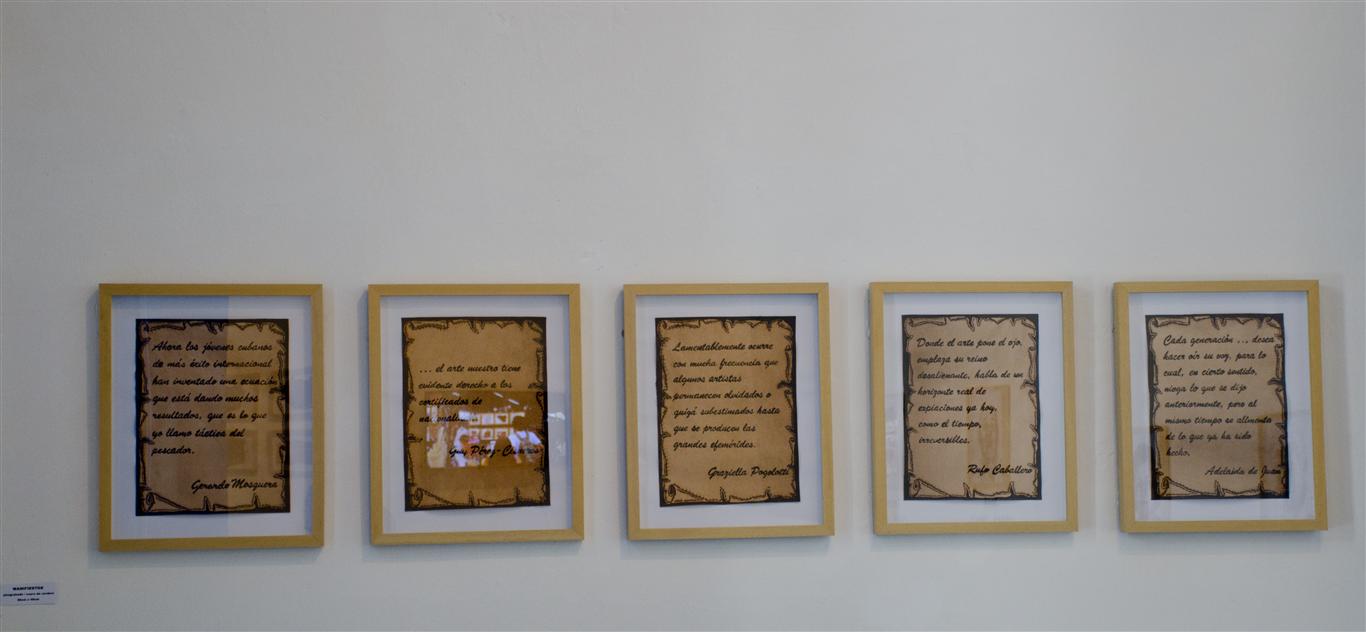 Ahora los jóvenes cubanos
de más éxito internacional
han inventado una ecuación
que está dando muchos
resultados, que es lo que
yo llamo táctica del
pescador.
Gerardo Mosquera
... el arte nuestro tiene
evidente derecho a los
certificados de
Guy Pérez-Cisneros
Lamentablemente ocurre
con mucha frecuencia que
algunos artistas
permanecen olvidados o
quizá subestimados hasta
que se producen las
grandes efemérides.
Graziella Pogolotti
Donde el arte pone el ojo,
emplaza su reino
desalienante, habla de un
horizonte real de
expiaciones ya hoy,
como el tiempo,
irreversibles.
Rufo Caballero
Cada generación ... desea
hacer oír su voz, para lo
cual, en cierto sentido,
niega lo que se dijo
anteriormente, pero al
mismo tiempo se alimenta
de lo que ya ha sido
hecho.
Adelaida de Juan
MANIFIESTOS